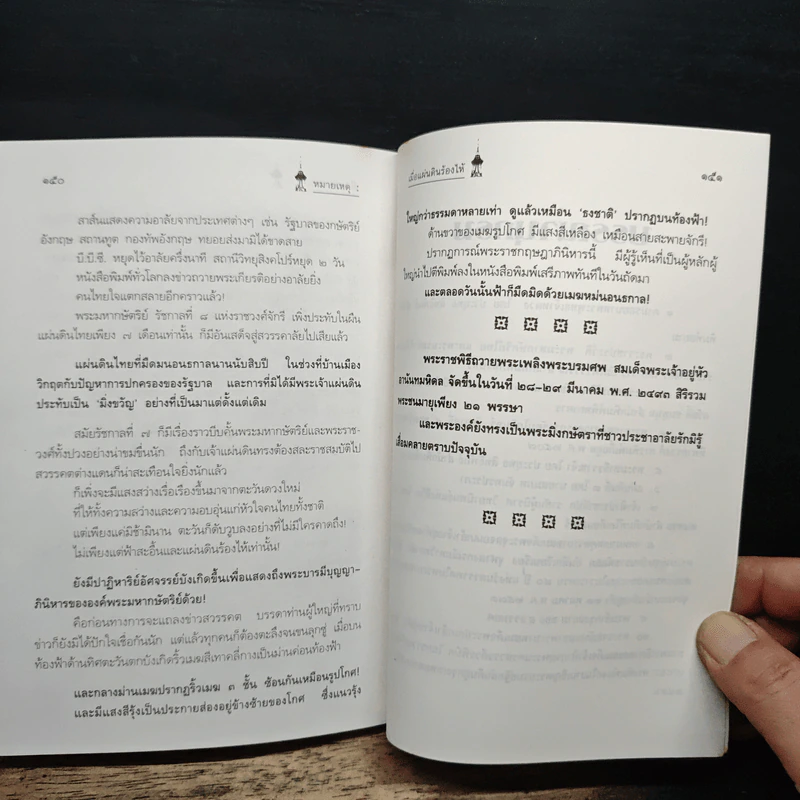 ๑๕๐
หมายเหตุ :
สาส์นแสดงความอาลัยจากประเทศต่างๆ เช่น รัฐบาลของกษัตริย์
อังกฤษ สถานทูต กองทัพอังกฤษ ทยอยส่งมามิได้ขาดสาย
บี.บี.ซี. หยุดไว้อาลัยครึ่งนาที สถานีวิทยุสิงคโปร์หยุด ๒ วัน
หนังสือพิมพ์ทั่วโลกลงข่าวถวายพระเกียรติอย่างอาลัยยิ่ง
คนไทยใจแตกสลายอีกคราวแล้ว!
พระมหากษัตริย์ รัชกาลที่ ๘ แห่งราชวงศ์จักรี เพิ่งประทับในผืน
แผ่นดินไทยเพียง ๗ เดือนเท่านั้น ก็มีอันเสด็จสู่สวรรคาลัยไปเสียแล้ว
แผ่นดินไทยที่มืดมนอนธกาลนานนับสิบปี ในช่วงที่บ้านเมือง
วิกฤตกับปัญหาการปกครองของรัฐบาล และการที่มิได้มีพระเจ้าแผ่นดิน
ประทับเป็น 'มิ่งขวัญ' อย่างที่เป็นมาแต่ตั้งแต่เดิม
สมัยรัชกาลที่ ๗ ก็มีเรื่องราวบีบคั้นพระมหากษัตริย์และพระราช-
วงศ์ทั้งปวงอย่างน่าขมขื่นนัก ถึงกับเจ้าแผ่นดินทรงต้องสละราชสมบัติไป
สวรรคตต่างแดนก็น่าสะเทือนใจยิ่งนักแล้ว
ก็เพิ่งจะมีแสงสว่างเรื่อเรืองขึ้นมาจากตะวันดวงใหม่
ที่ให้ทั้งความสว่างและความอบอุ่นแก่หัวใจคนไทยทั้งชาติ
แต่เพียงแค่มิช้ามินาน ตะวันก็ดับวูบลงอย่างที่ไม่มีใครคาดถึง!
ไม่เพียงแต่ฟ้าสะอื้นและแผ่นดินร้องไห้เท่านั้น!
ยังมีปาฏิหาริย์อัศจรรย์บังเกิดขึ้นเพื่อแสดงถึงพระบารมีบุญญา-
ภินิหารขององค์พระมหากษัตริย์ด้วย!
คือก่อนทางการจะแถลงข่าวสวรรคต บรรดาท่านผู้ใหญ่ที่ทราบ
ข่าวก็ยังมิได้ปักใจเชื่อกันนัก แต่แล้วทุกคนก็ต้องตะลึงจนขนลุกซู่ เมื่อบน
ท้องฟ้าด้านทิศตะวันตกบังเกิดริ้วเมฆสีเทาคลี่กางเป็นม่านค่อนท้องฟ้า
และกลางม่านเมฆปรากฏริ้วเมฆ ๓ ชั้น ซ้อนกันเหมือนรูปโกศ!
และมีแสงสีรุ้งเป็นประกายส่องอยู่ข้างซ้ายของโกศ ซึ่งแนวรุ้ง
เมื่อแผ่นดินร้องไห้
๑๕๑
ใหญ่กว่าธรรมดาหลายเท่า ดูแล้วเหมือน 'ธงชาติ' ปรากฏบนท้องฟ้า!
ด้านขวาของเมฆรูปโกศ มีแสงสีเหลือง เหมือนสายสะพายจักรี!
ปรากฏการณ์พระราชกฤษฎาภินิหารนี้ มีผู้รู้เห็นที่เป็นผู้หลักผู้
ใหญ่นำไปตีพิมพ์ลงในหนังสือพิมพ์เสรีภาพทันทีในวันถัดมา
และตลอดวันนั้นฟ้าก็มืดมิดด้วยเมฆหม่นอนธกาล!
พระราชพิธีถวายพระเพลิงพระบรมศพ สมเด็จพระเจ้าอยู่หัว
อานันทมหิดล จัดขึ้นในวันที่ ๒๘-๒๙ มีนาคม พ.ศ. ๒๔๙๓ สิริรวม
พระชนมายุเพียง ๒๑ พรรษา
และพระองค์ยังทรงเป็นพระมิ่งกษัตราที่ชาวประชาอาลัยรักมิรู้
เสื่อมคลายตราบปัจจุบัน